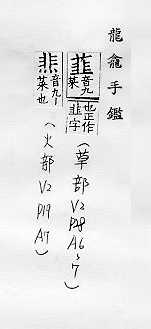 龍龕手鑑
韮音九菜也正作韭字
(草部 V2 P28 A6、7)
音九菜也
(火部 V2 P19 A7)